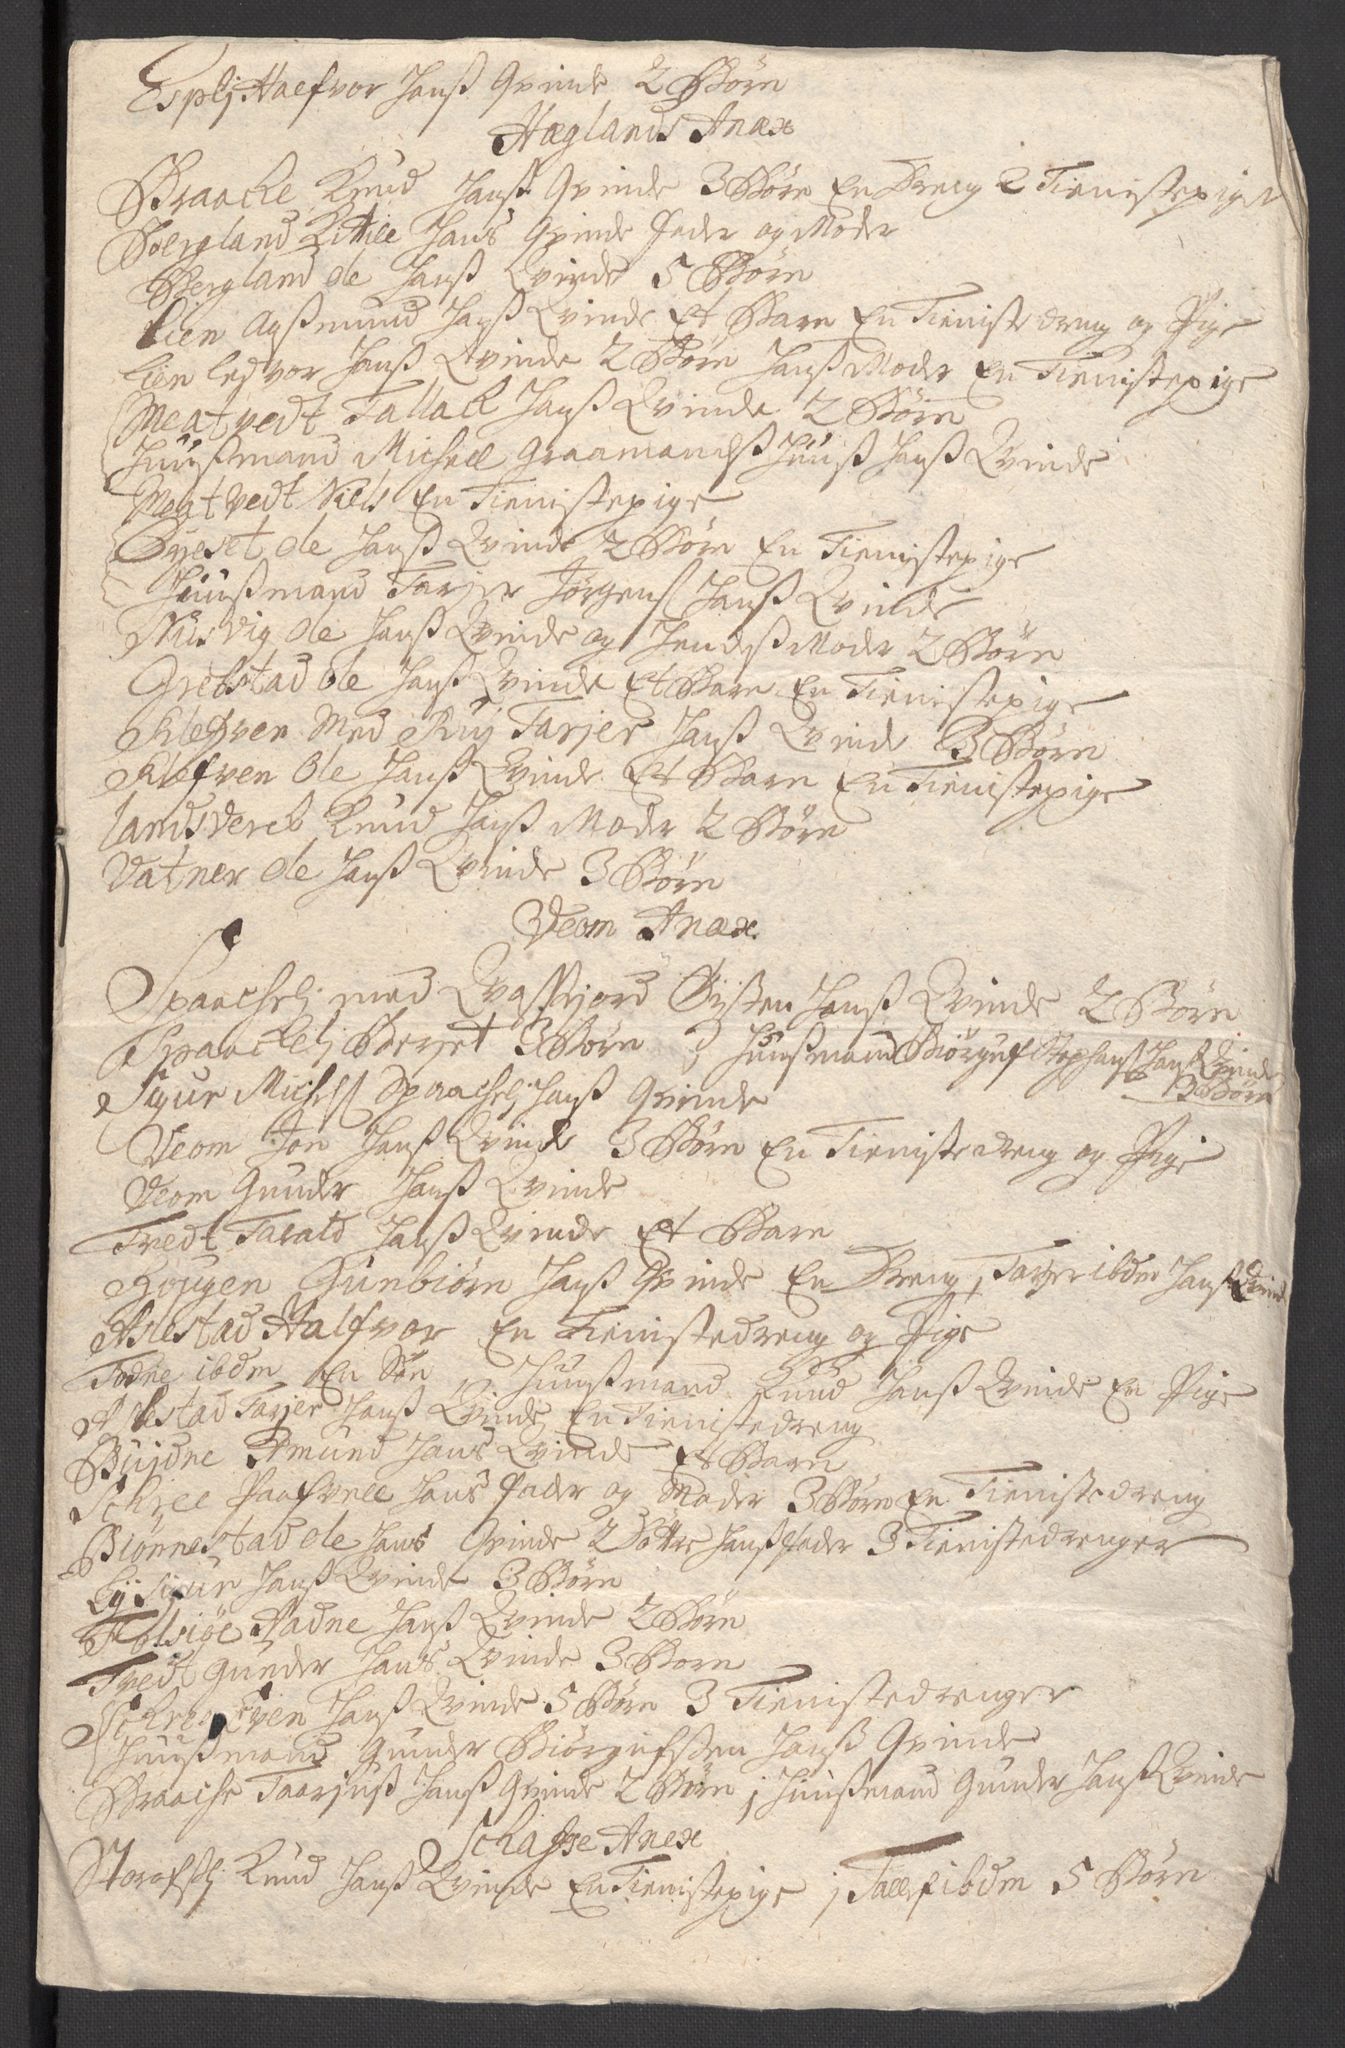 Esplj Halfvor Hanß Qvinde 2 Børn
Heglands Anex
Braacke Knud Hanß Qvinde 3 Børn En Dreng 2 Tienistepiger
Bergland Kittill Hans Qvinde Fader og Moder
Bergland Ole Hanß Qvinde 5 Børn
Lien Aaßmund Hanß Qvinde Et Barn En Tieniste dreng og Pige
Lien Ledvor Hanß Qvinde 2 Børn Hanß Moder En Tienistepige
Meatvedt Tallack Hanß Qvinde 2 Børn
Huußmand Michell Graamandß Huuß Hanß Qvinde
Meatvedt Niels En Tienistepige
Ole Hanß Qvinde 2 Børn En Tienistepige
Huußmand Tarjer Jørgenß Hanß Qvinde
Ole Hanß Qvinde og Hendeß Moder 2 Børn
Grebstad Ole Hanß Qvinde Et Barn En Tienistepige
Klefven Med Ruj Tarjer Hanß Qvinde 3 Børn
Klefven Ole Hanß Qvinde Et Barn En Tienistepige
Landsverck Knud Hanß Moder 2 Børn
Vatner Ole Hanß Qvinde 3 Børn
Veom Anex
Spaachelj med Qvaßfjord Øisten Hanß Qvinde 2 Børn
Spaackelj Berjet 3 Børn j Huußmand Biørguf Stephanß Hanß Qvinde
3 Børn
Sigur Michelß Spaachelj Hanß Qvinde
Veom Jon Hanß Qvinde 3 Børn En Tienistedreng og Pige
Veom Gunder Hanß Qvinde
Tvedt Tarald Hanß Qvinde Et Barn
Hougen Gunbiørn Hanß Qvinde En Dreng, Tarjer ibdm Hanß Qvind
Aslestad Halfvor En Tienistedreng og Pige
Todne ibdm En Søn, Huußmand Knud Hanß Qvinde En Pige
Aslestad Tarjer Hanß Qvinde En Tienistedreng
Bujdne Amund Hans Qvinde Et Barn
Schree Paafvell Hans Fader og Moder 3 Børn En Tienistedreng
Biønnestad Ole Hans Qvinde 2 Døttre Hanß Fader 3 Tienistedrenger
Lij Sigur Hanß Qvinde 3 Børn
Folsiøe Aadne Hanß Qvinde 2 Børn
Tvedt Gunder Hans Qvinde 3 Børn
Schree Even Hanß Qvinde 5 Børn 3 Tienistedrenger
Huußmand Gunder Biørgufsen Hanß Qvinde
Braache Taarjuß Hanß Qvinde 2 Børn j Huußmand Gunder Hanß Qvinde
Schafße Anex
Knud Hanß Qvinde En Tienistepige j Tallef ibdm 5 Børn